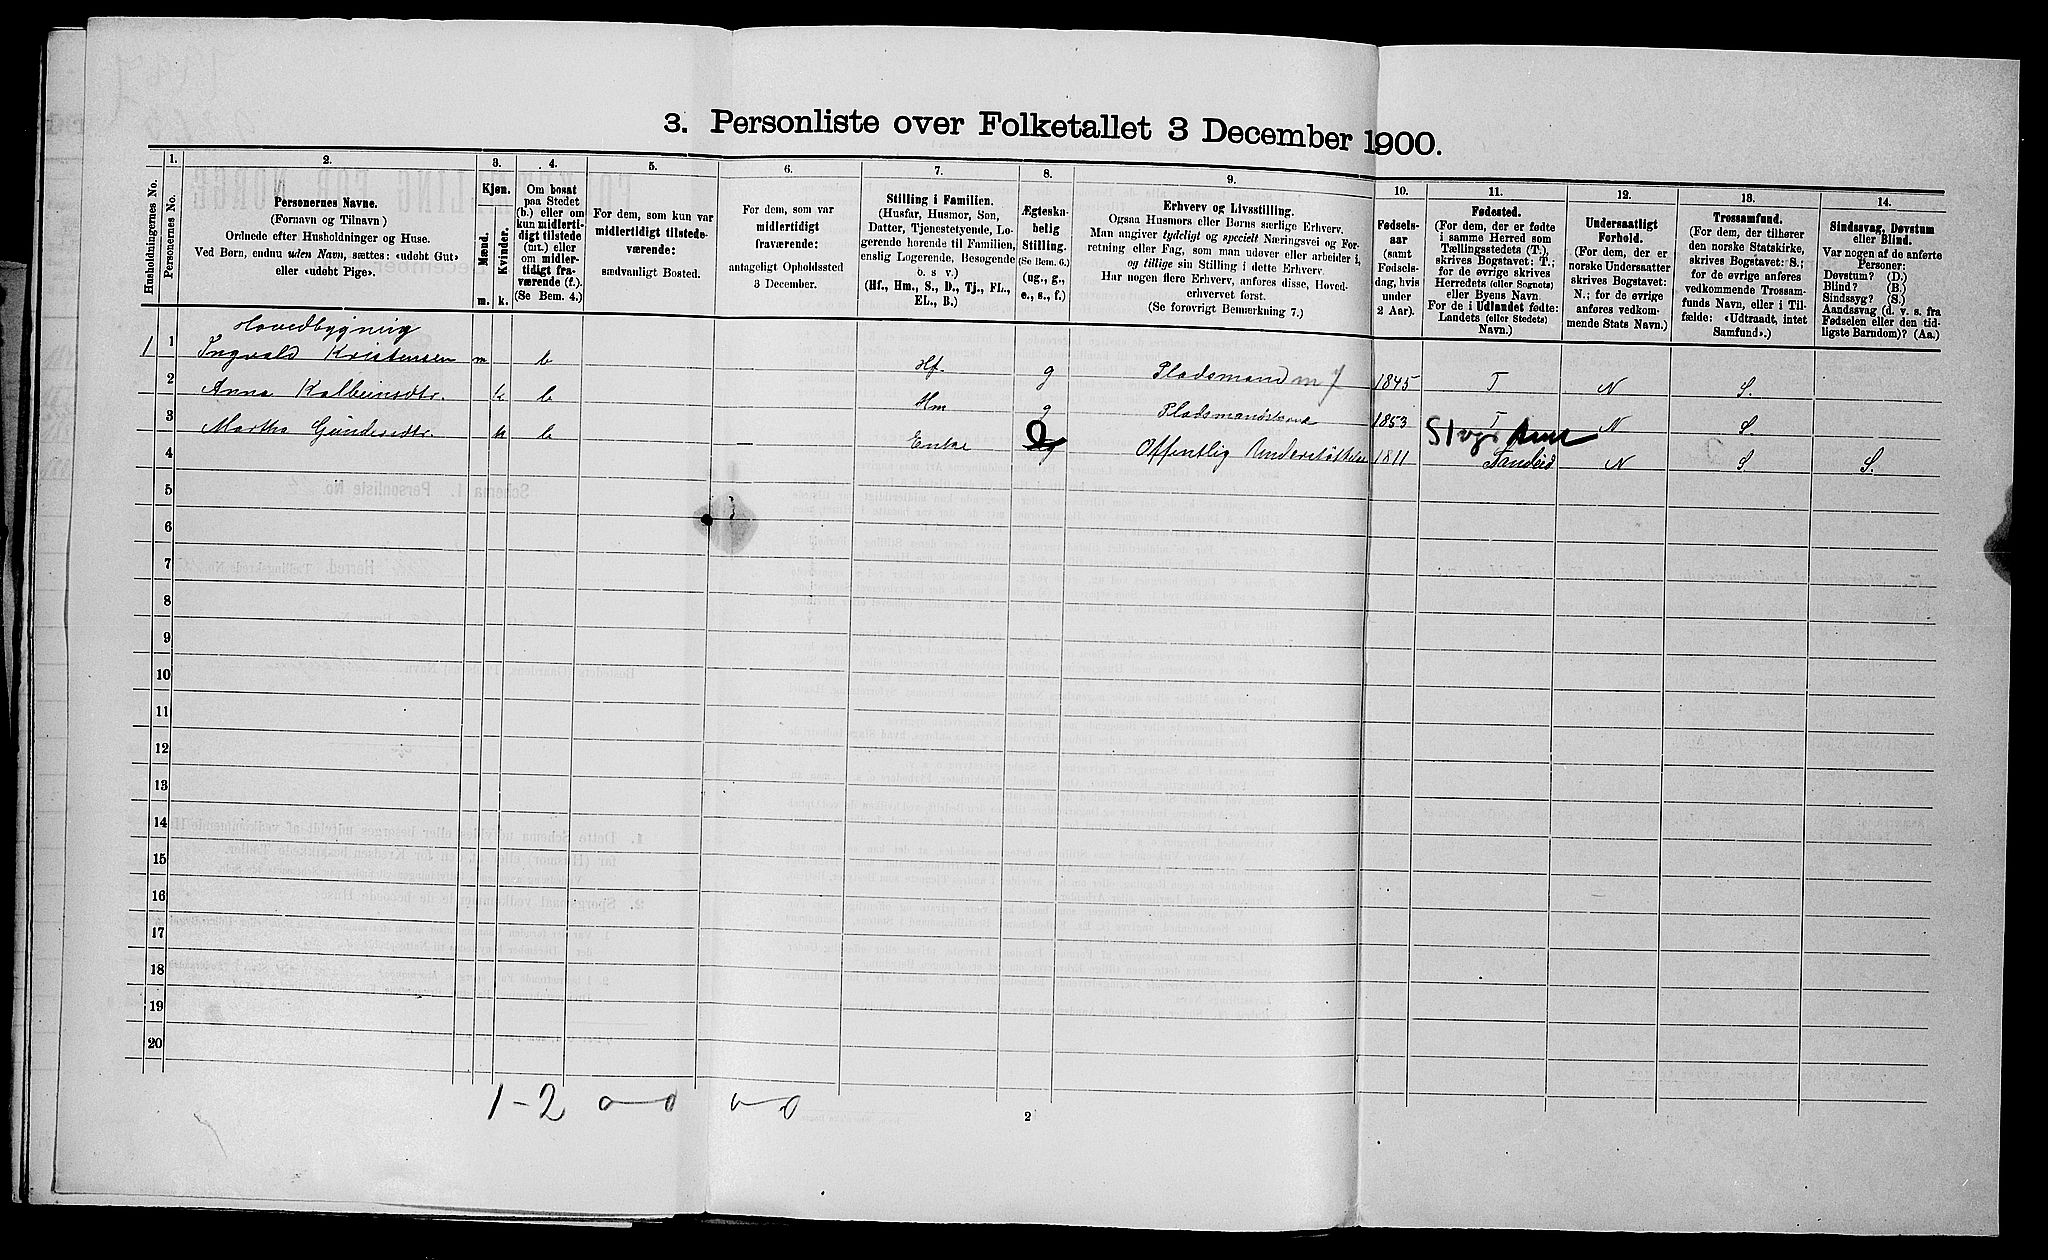 3. Personliste over Folketallet 3 December 1900.
Husholdningernes No.
1.
Personernes No.
2.
Personernes Navne.
(Fornavn og Tilnavn)
Ordnede efter Husholdninger og Huse.
Ved Børn, endnu uden Navn, sættes: «udøbt Gut»
eller «udøbt Pige».
3.
Kjøn.
Mænd.
Kvinder.
m.
k.
4.
Om bosat
paa Stedet
(b.) eller om
kun midlerti-
digt tilstede
(mt.) eller
om midler-
tidigt fra-
værende (f.).
(Se Bem. 4.)
5.
For dem, som kun var
midlertidigt tilstede-
værende:
sædvanligt Bosted.
6.
For dem, som var
midlertidigt
fraværende:
antageligt Opholdssted
3 December.
7.
Stilling i Familien.
(Husfar, Husmor, Søn,
Datter, Tjenestetyende, Lo-
gerende hørende til Familien,
enslig Logerende, Besøgende
o. s v.)
(Hf., Hm., S., D., Tj., FL.,
EL., B.)
8.
Ægteska-
belig
Stilling.
(Se Bem. 6.)
(ug., g.,
e., s., f.)
9.
Erhverv og Livsstilling.
Ogsaa Husmors eller Børns særlige Erhverv.
Man angiver tydeligt og specielt Næringsvei og For-
retning eller Fag, som man udøver eller arbeider i,
og tillige sin Stilling i dette Erhverv.
Har nogen flere Erhverv, anføres disse, Hoved-
erhvervet først.
(Se forøvrigt Bemærkning 7.)
10.
Fødsels-
aar
(samt
Fødsels-
dag, hvis
under
2 Aar).
11.
Fødested.
(For dem, der er fødte
i samme Herred som
Tællingsstedets (T.),
skrives Bogstavet: T.;
for de øvrige skrives
Herredets (eller Sognets)
eller Byens Navn.
For de i Udlandet fødte:
Landets (eller Stedets)
Navn.)
12.
Undersaatligt
Forhold.
(For dem, der er
norske Undersaatter
skrives Bogstavet:
N.; for de øvrige
anføres vedkom-
mende Stats Navn.)
13.
Trossamfund.
(For dem, der tilhører
den norske Statskirke,
skrives Bogstavet: S.;
for de øvrige anføres
vedkommende Trossam-
funds Navn, eller i Til-
fælde: «Udtraadt, intet
Samfund».)
14.
Sindssvag, Døvstum
eller Blind.
Var nogen af de anførte
Personer:
Døvstum? (D.)
Blind? (B.)
Sindssyg? (S.)
Aandssvag (d. v. s. fra
Fødselen eller den tid-
ligste Barndom)? (Aa.)
Hovedbygning
1 1 Ingvald Kristensen m b Hf. g Pladsmand m 7 1845 T N S.
2 Anna Kolbeinsdtr. k b Hm g Pladsmandskone 1853 T N S.
3 Martha Gundersdtr. k b Enke Offentlig Understøttelse 1811 Sandeid N S S.
4
5
6
7
8
9
10
11
12
13
14
15
16
17
18
19
20
1-2 0-0 0-0
2